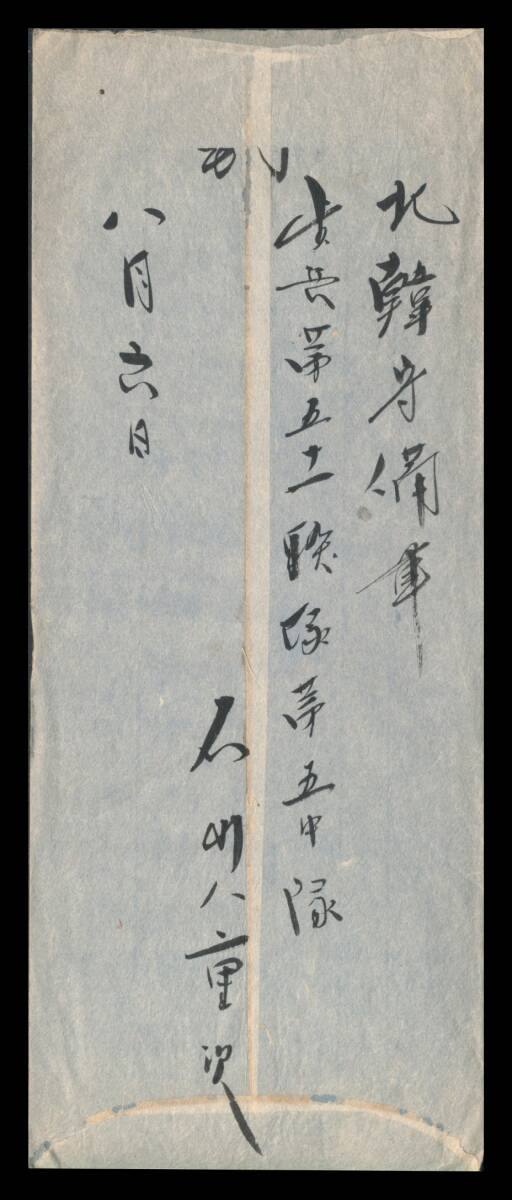 北韓守備軍
歩兵第五十一聯隊第五中隊
石川八重次
八月六日